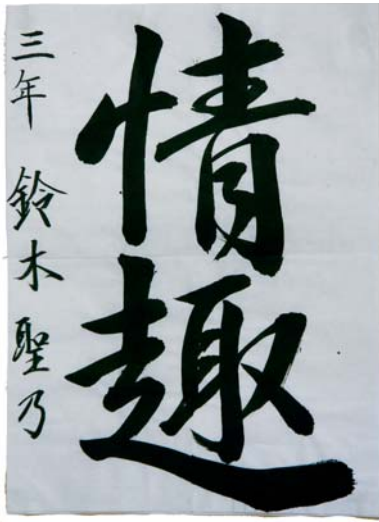 情趣
三年 鈴木聖乃